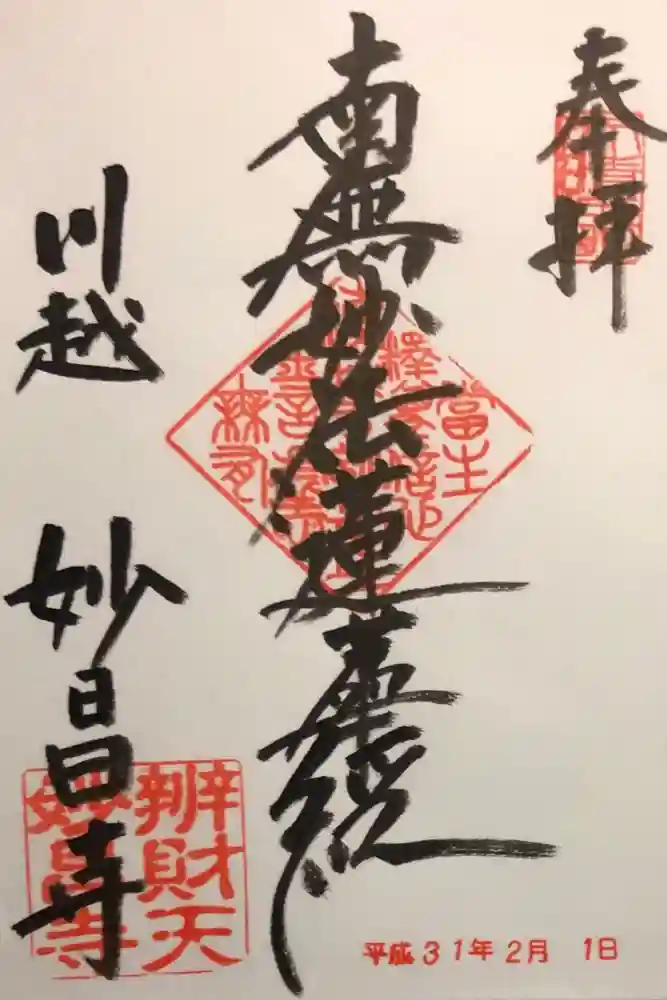 奉拝
南無妙法蓮華経
川越 妙昌寺
當生
辨財天
妙昌寺
平成31年2月 1日